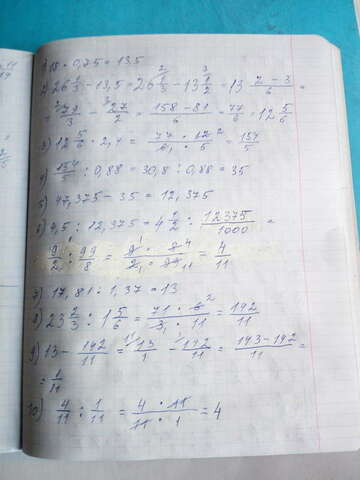 1) 18 · 0,75 = 13,5
2) 26 1/3 - 13,5 = 26 1/3 - 13 1/2 = 13 (2 - 3)/6 =
= 79/3 - 27/2 = (158 - 81)/6 = 77/6 = 12 5/6
3) 12 5/6 · 2,4 = (77 · 12)/(6 · 5) = 154/5
4) 154/5 : 0,88 = 30,8 : 0,88 = 35
5) 47,375 - 35 = 12,375
6) 4,5 : 12,375 = 4 1/2 : 12375/1000 =
= 9/2 : 99/8 = (9 · 8)/(2 · 99) = 4/11
7) 17,81 : 1,37 = 13
8) 23 2/3 : 1 5/6 = (71 · 6)/(3 · 11) = 142/11
9) 13 - 142/11 = 13/1 - 142/11 = (143 - 142)/11 =
= 1/11
10) 4/11 : 1/11 = (4 · 11)/(11 · 1) = 4